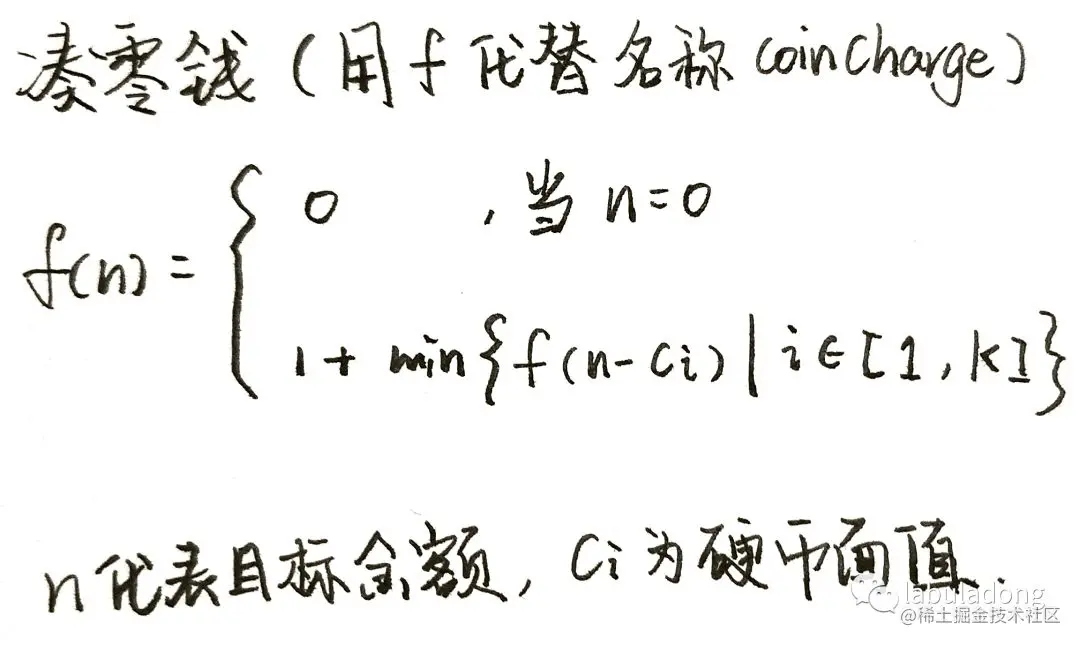 凑零钱(用f代替名称 coinCharge)
0 ,当 n=0
f(n) =
1 + min{f(n-Ci) | i∈[1,k]}
n代表目标金额, Ci为硬币面值.
labuladong
@稀土掘金技术社区